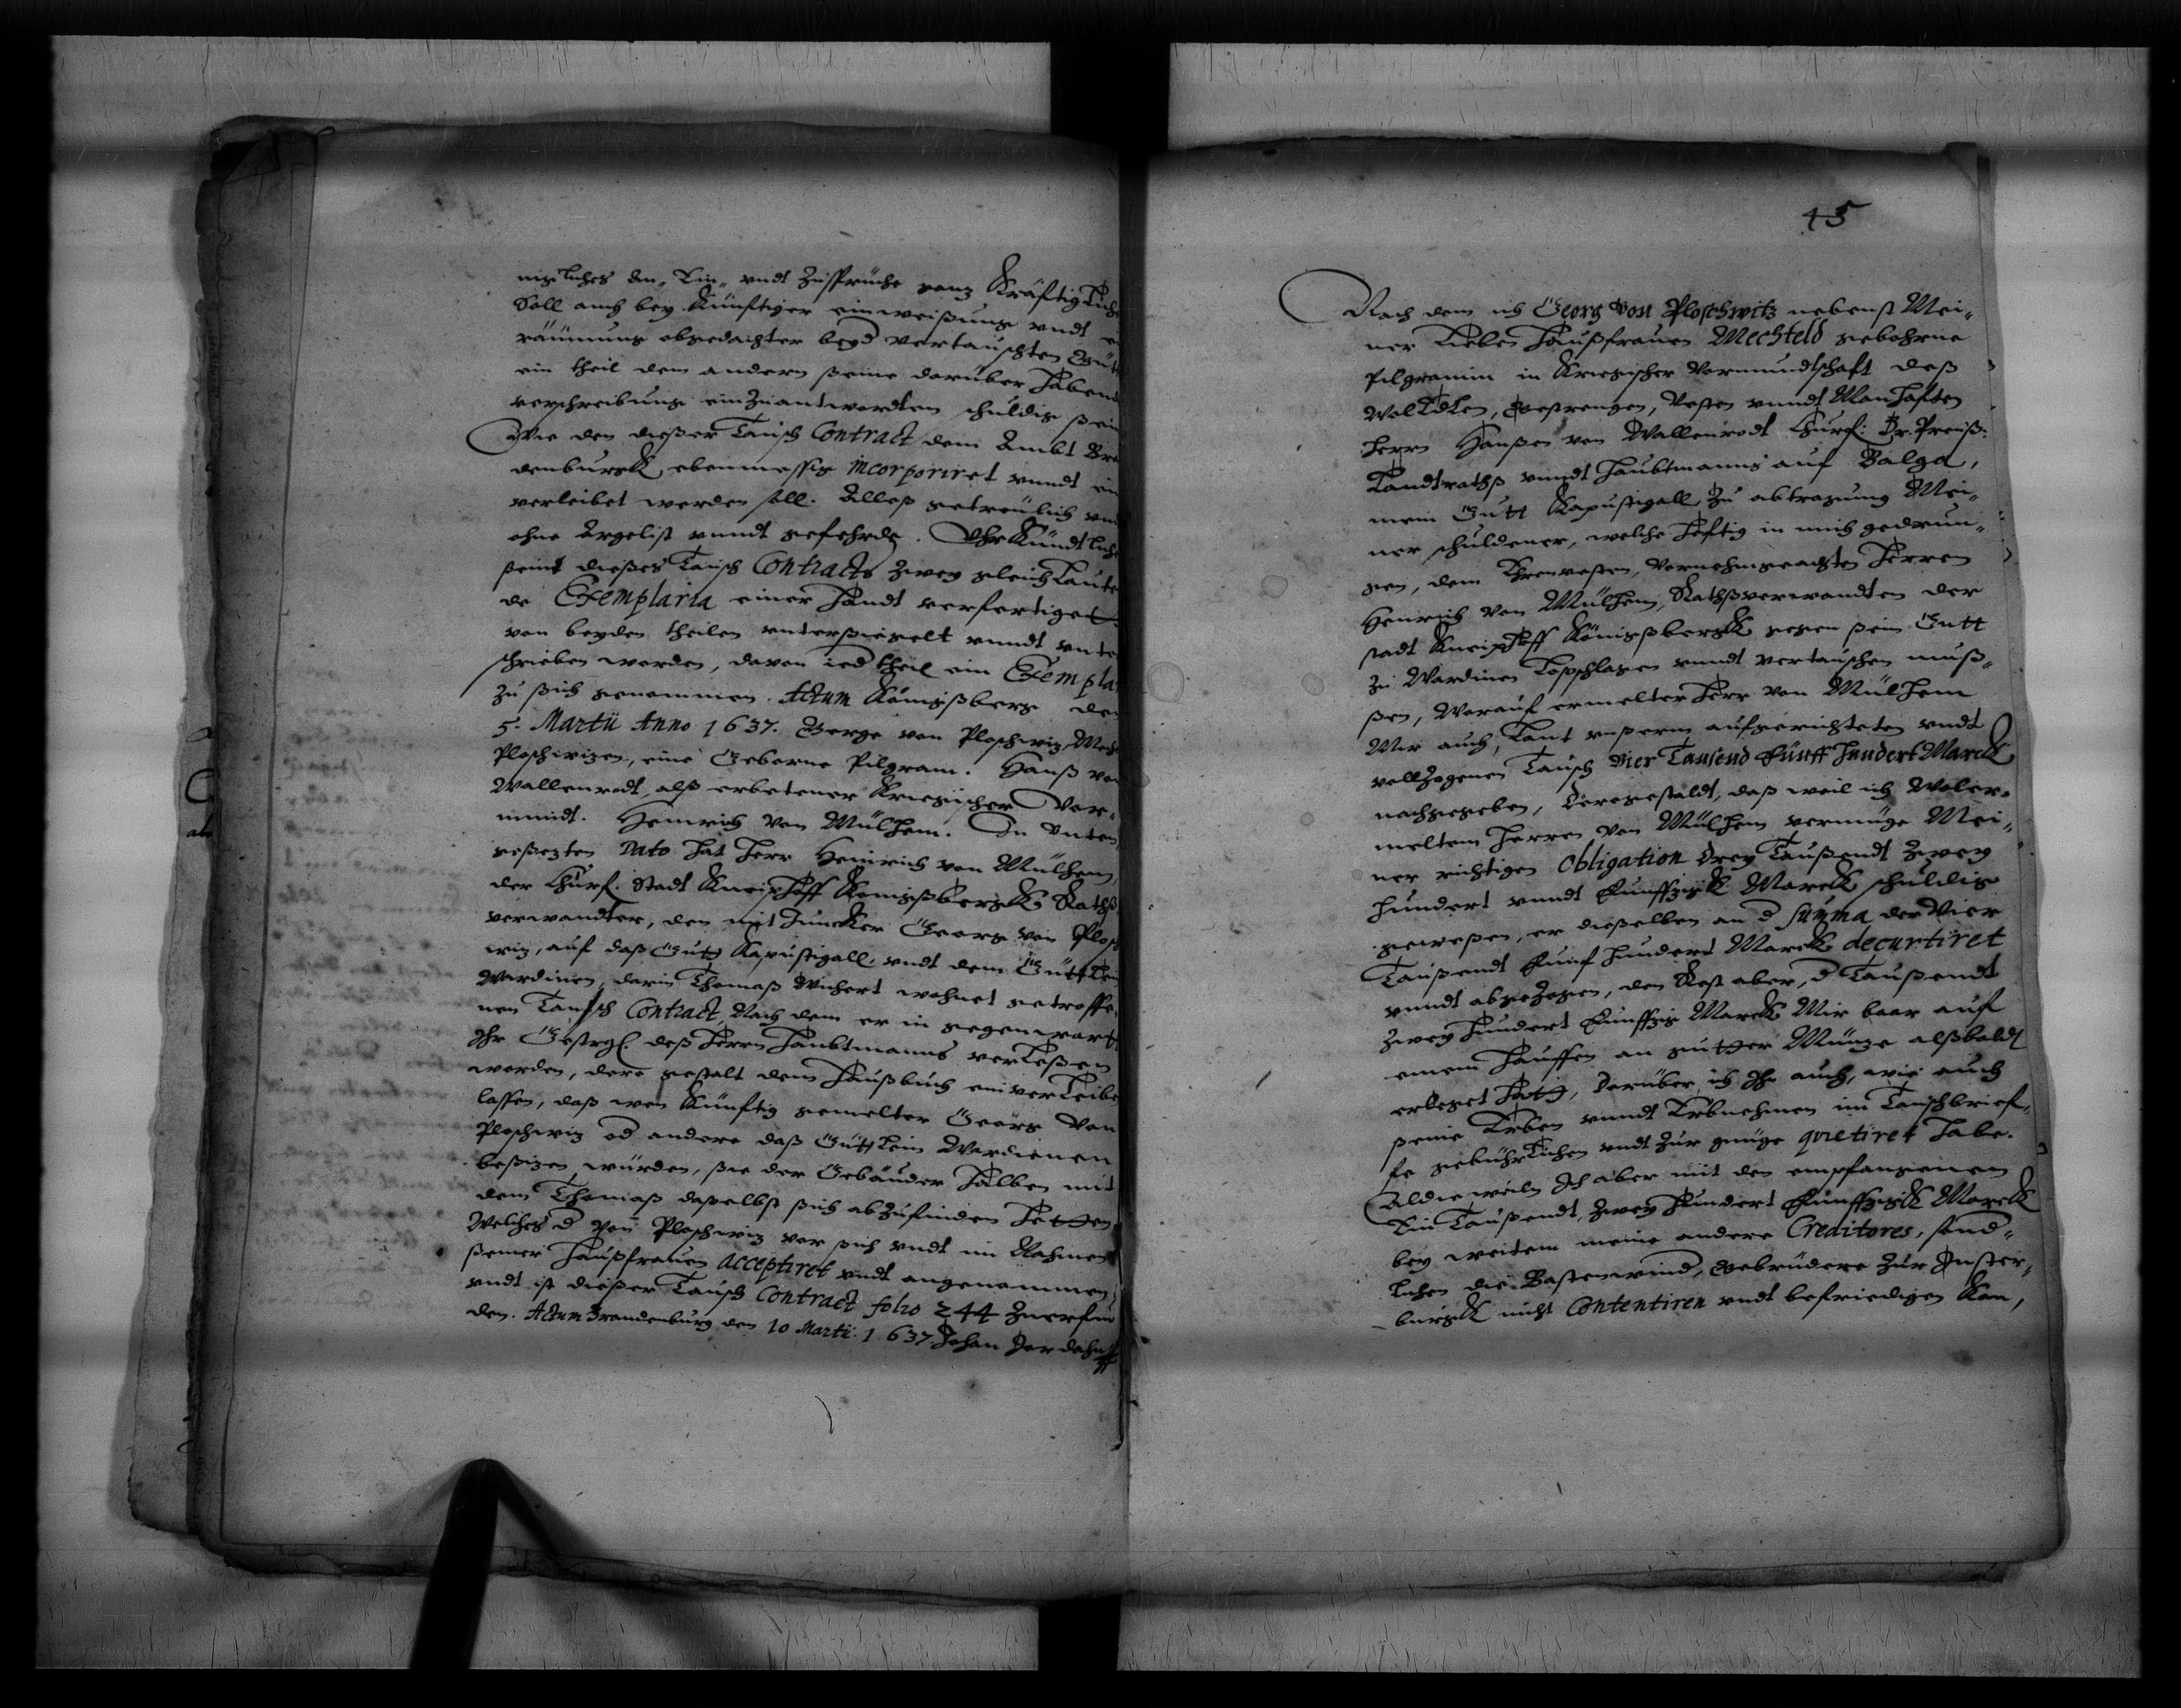 nigliches An- Ein- undt Zusprüche ganz Kräftiglich
Soll auch bey Künftiger einweißung undt ei
räumung obgedachter beyd vertauschten Güt
ein theil dem andern seine darüber habend
verschreibung einzuantwordten schuldig sein
Wie den dießer Tausch Contract dem Ambt Bra
denburgk ebenmessig incorporiret unndt ein
verleibet werden soll. Alles getreulich und
ohne Argelist unndt gefehrde. Uhrkundtlich
seint dießes Tausch Contracts zwey gleichlaute
de Exemplaria einer handt verfertiget
von beyden theilen untersiegelt unndt unte
schrieben worden, davon ied theil ein Exemplar
zu sich genommen. Actum Königsberg den
5. Martii Anno 1637. Gerge von Ploschwiz, Mech
Ploschwizen, eine Geborne Pilgram. Hanß von
Wallenrodt, alß erbetener Kriegischer Vor-
mundt. Henrich von Mülhem. In unten
gesezten Dato hat Herr Heinrich von Mülhem,
der Churf. Stadt Kneiphoff Königsbergk Rathß
verwandter, den mit Juncker Georg von Plosch
wiz, auf daß Gutt Kapustigall, undt dem Güttlein
Wardinen, darin Thomaß Wichert wohnet getroffe
nen Tausch Contract, Nach dem er in gegenwart
Ihr Gestrgl. deß Herrn Haubtmanns verleßen
worden, dero gestalt dem Haußbuch einverleibe
lassen, daß wen Künftig gemelter Georg von
Ploschwiz od andere daß Güttlein Wardienen
besizen würden, sie der Gebäuder halben mit
dem Thomaß daselbst sich abzufinden hetten
Welches d von Ploschwiz vor sich undt im Nahmen
seiner Haußfrauen acceptiret undt angenommen,
undt ist dießer Tausch Contract folio 244 zuerfin
den. Actum Brandenburg den 10 Martii 1637 Johan
45
Nach dem ich Georg von Ploschwitz nebenst Mei-
ner Lieben Haußfrauen Mechteld gebohrne
Pilgramin in Kriegischer Vormundtschaft deß
WolEdlen, Gestrengen, Vesten unndt Manhaften
Herrn Hanßen von Wallenrodt Churf: Br. Preuß:
Landtrathß unndt Haubtmanns auf Balga,
mein Gutt Kapustigall, zu abtragung Mei-
ner schuldener, welche heftig in mich gedrun-
gen, dem Ehrnvesten, Vornehmgeachten Herren
Henrich von Mülhem, Rathßverwandten der
stadt Kneiphoff Königsbergk gegen sein Gutt
zu Wardinen loßschlagen unndt vertauschen müß-
ßen, Worauf ermelter Herr von Mülhem
Mir auch, laut unserm aufgerichteten undt
vollzogenen Tausch Vier Tausend Fünff hundert Marck
nachgegeben, Deregestaldt, daß weil ich Woler-
meltem Herren von Mülhem vermüge Mei-
ner richtigen Obligation Drey Taußendt zwey
hundert unndt Funffzigk Marck schuldig
geweßen, er dießelben an d Summa der Vier
Taußendt Funf hundert Marck decurtiret
unndt abgezogen, den Rest aber, d Taußendt
zwey hundert Funffzig Marck Mir baar auf
einem Hauffen an gutter Münze alßbaldt
erleget hatt, Darüber ich Ihn auch, wie auch
seine Erben unndt Erbnehmen im Tauschbrief-
fe gebührlichen undt zur gnüge quietiret habe.
Aldieweiln Ich aber mit den empfangenen
Ein Taußendt, zwey hundert Funffzigk Marck
bey weitem meine andere Creditores, sönd-
lichen die Bastenwind, Gebrüdere zur Inster-
burgk nicht Contentiren undt befriedigen Kan,